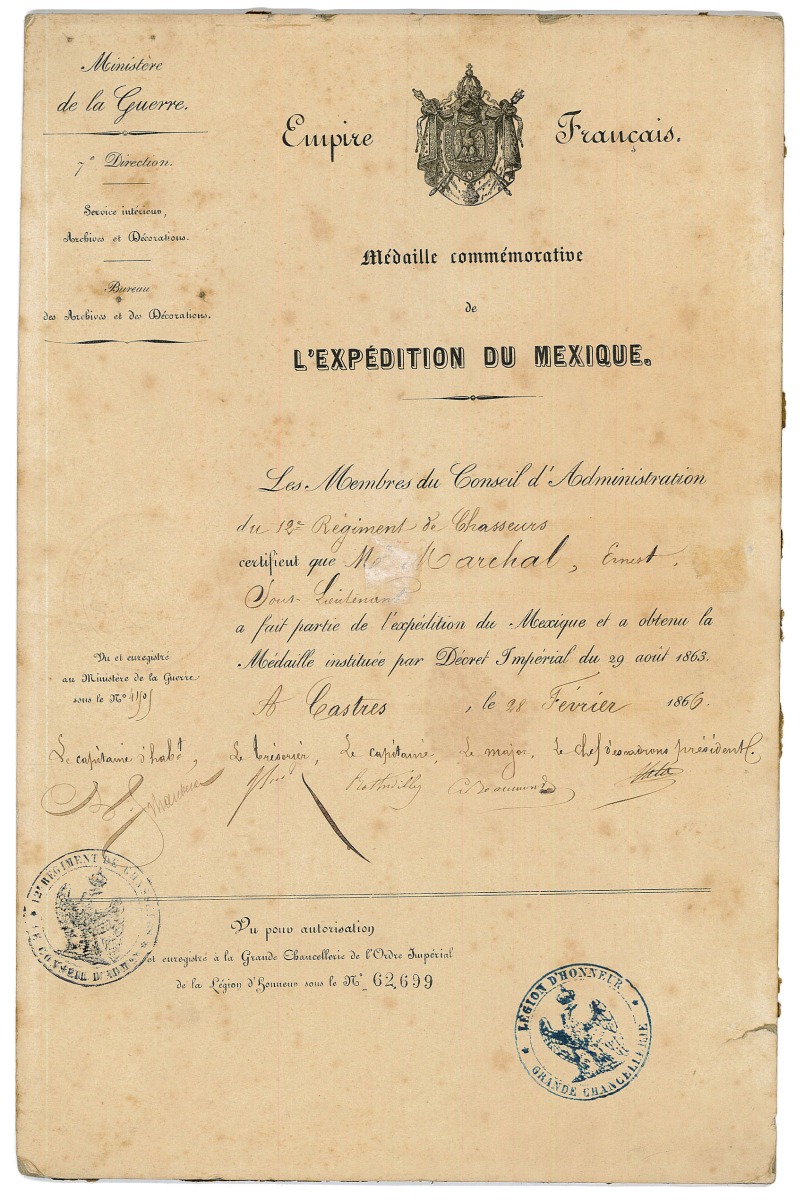 Ministère
de la Guerre.
7e Direction.
Service intérieur,
Archives et Décorations.
Bureau
des Archives et des Décorations.
Empire Français.
Médaille commémorative
de
L'EXPÉDITION DU MEXIQUE.
Les Membres du Conseil d'Administration
du 12e Régiment de Chasseurs
certifient que M. Marchal, Ernest,
Sous-Lieutenant
a fait partie de l'expédition du Mexique et a obtenu la
Médaille instituée par Décret Impérial du 29 août 1863.
Vu et enregistré
au Ministère de la Guerre
sous le No
A Castres, le 28 Février 1866.
Le capitaine d'habt, Le trésorier, Le capitaine, Le major, Le chef d'escadrons président.
de Beaumont
12e RÉGIMENT DE CHASSEURS
LE CONSEIL D'ADMON
Vu pour autorisation
et enregistré à la Grande Chancellerie de l'Ordre Impérial
de la Légion d'Honneur sous le No 62699
LÉGION D'HONNEUR
GRANDE CHANCELLERIE